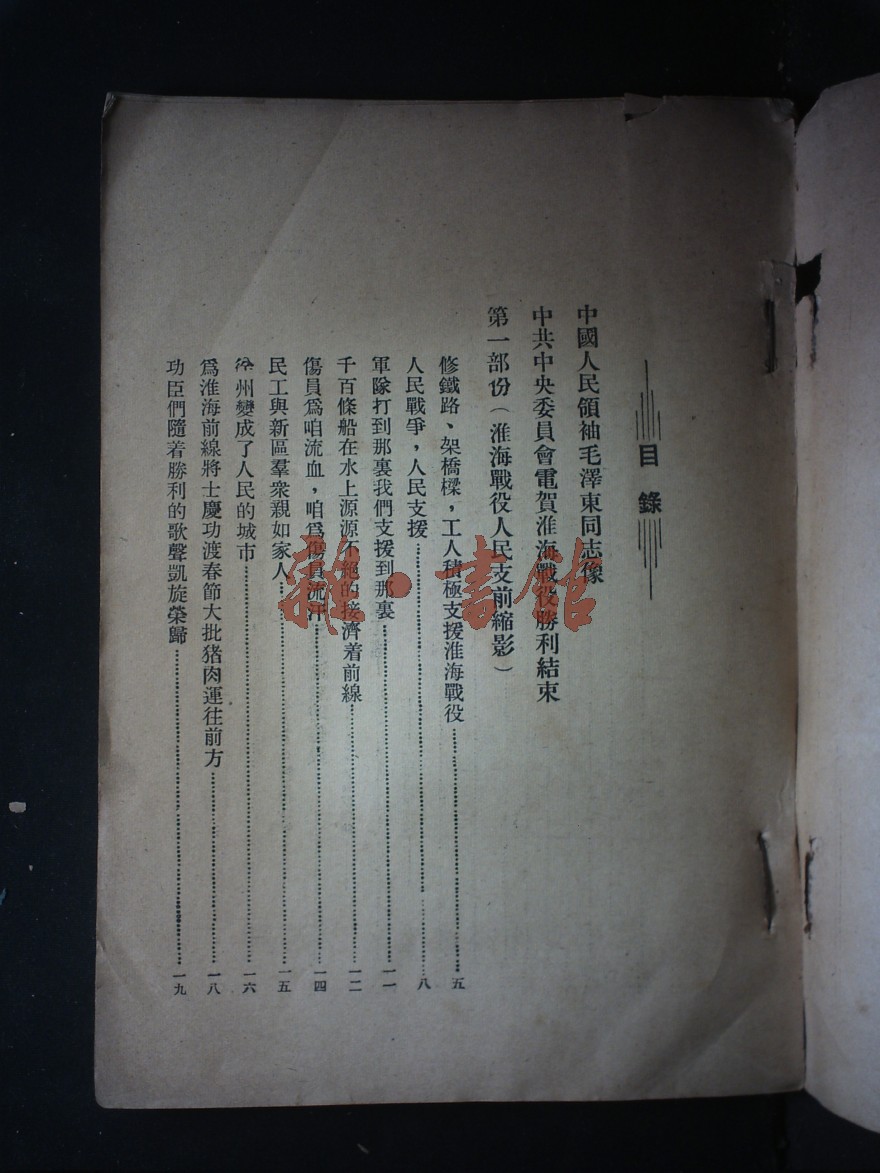 目錄
中國人民領袖毛澤東同志像
中共中央委員會電賀淮海戰役勝利結束
第一部份（淮海戰役人民支前縮影）
修鐵路、架橋樑，工人積極支援淮海戰役……五
人民戰爭，人民支援……八
軍隊打到那裏我們支援到那裏……一一
千百條船在水上源源不絕的接濟着前線……一二
傷員爲咱流血，咱爲傷員流汗……一四
民工與新區羣衆親如家人……一五
徐州變成了人民的城市……一六
爲淮海前線將士慶功渡春節大批猪肉運往前方……一八
功臣們隨着勝利的歌聲凱旋榮歸……一九
雜·書館